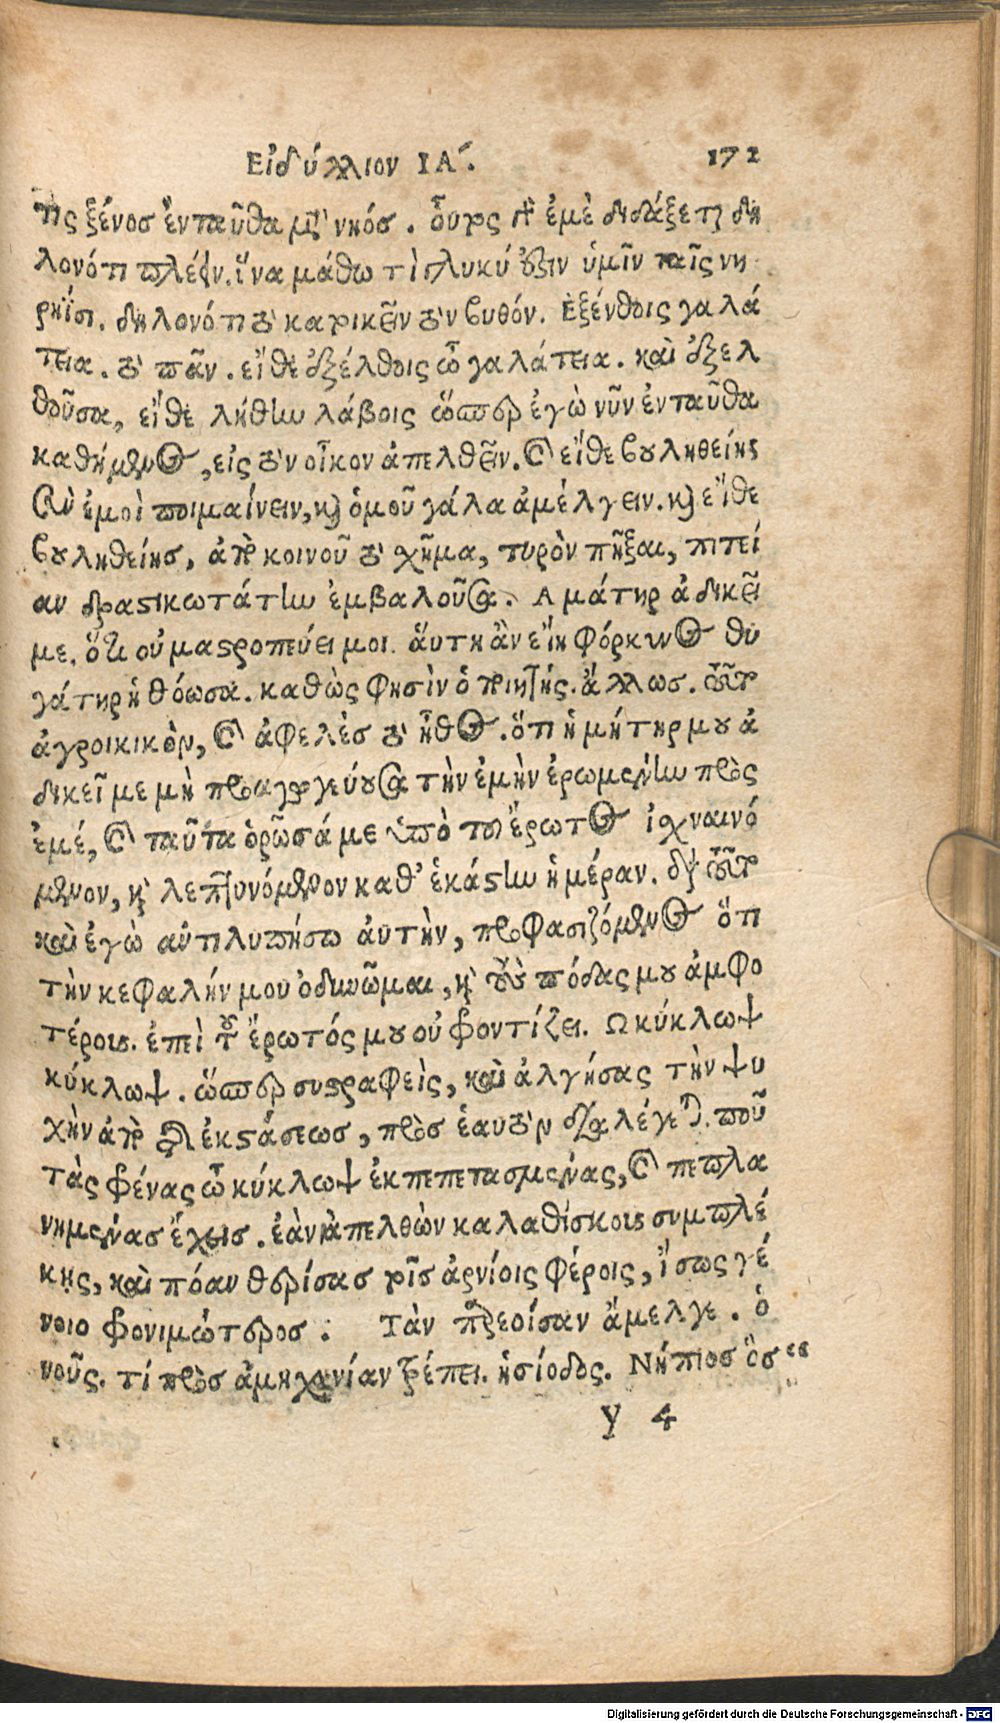 Εἰδύλλιον ΙΑ΄. 172
τὶς ξένος ἐνταῦθα μετὰ νηός. οὗτος γὰρ ἐμὲ διδάξεται δη
λονότι πλέειν. ἵνα μάθω τὶ γλυκύ ἐστιν ὑμῖν ταῖς νη
ρηΐσι. δηλονότι τὸ κατοικεῖν τὸν βυθόν. Ἐξένθοις γαλά
τεια. τὸ πᾶν. εἴθε ἐξέλθοις ὦ γαλάτεια. καὶ ἐξελ
θοῦσα, εἴθε λήθην λάβοις ὥσπερ ἐγὼ νῦν ἐνταῦθα
καθήμενος, εἰς τὸν οἶκον ἀπελθεῖν. καὶ εἴθε βουληθείης
σὺ ἐμοὶ ποιμαίνειν, καὶ ὁμοῦ γάλα ἀμέλγειν. καὶ εἴθε
βουληθείης, ἀπὸ κοινοῦ τὸ χῆμα, τυρὸν πῆξαι, πιτεί
αν δραστικωτάτην ἐμβαλοῦσα. Α μάτηρ ἀδικεῖ
με. ὅτι οὐ μαστροπεύει μοι. αὕτη ἂν εἴη φόρκυνος θυ
γάτηρ ἡ θόωσα. καθὼς φησὶν ὁ ποιητής. ἄλλως. τοῦτο
ἀγροικικὸν, καὶ ἀφελὲς τὸ ἦθος. ὅτι ἡ μήτηρ μου ἀ
δικεῖ με μὴ προαγωγεύουσα τὴν ἐμὴν ἐρωμένην πρὸς
ἐμέ, καὶ ταῦτα ὁρῶσά με ὑπὸ τοῦ ἔρωτος ἰχναινό
μενον, καὶ λεπτυνόμενον καθ᾽ ἑκάστην ἡμέραν. διὰ τοῦτο
καὶ ἐγὼ ἀντιλυπήσω αὐτὴν, προφασιζόμενος ὅτι
τὴν κεφαλήν μου ὀδυνῶμαι, καὶ τοὺς πόδας μου ἀμφο
τέρους. ἐπεὶ τοῦ ἔρωτός μου οὐ φροντίζει. Ω κύκλωψ
κύκλωψ. ὥσπερ συστραφεὶς, καὶ ἀλγήσας τὴν ψυ
χὴν ἀπὸ τῆς ἐκστάσεως, πρὸς ἑαυτὸν διαλέγεται. ποῦ
τὰς φρένας ὦ κύκλωψ ἐκπεπετασμένας, καὶ πεπλα
νημένας ἔχεις. ἐὰν ἀπελθὼν καλαθίσκους συμπλέ
κῃς, καὶ πόαν θερίσας τοῖς ἀρνίοις φέροις, ἴσως γέ
νοιο φρονιμώτερος. Τὰν παρεοίσαν ἄμελγε. ὁ
νοῦς. τί πρὸς ἀμηχανίαν τρέπει. ἡσίοδος. Νήπιος ὃς
Y 4
Digitalisierung gefördert durch die Deutsche Forschungsgemeinschaft - DFG